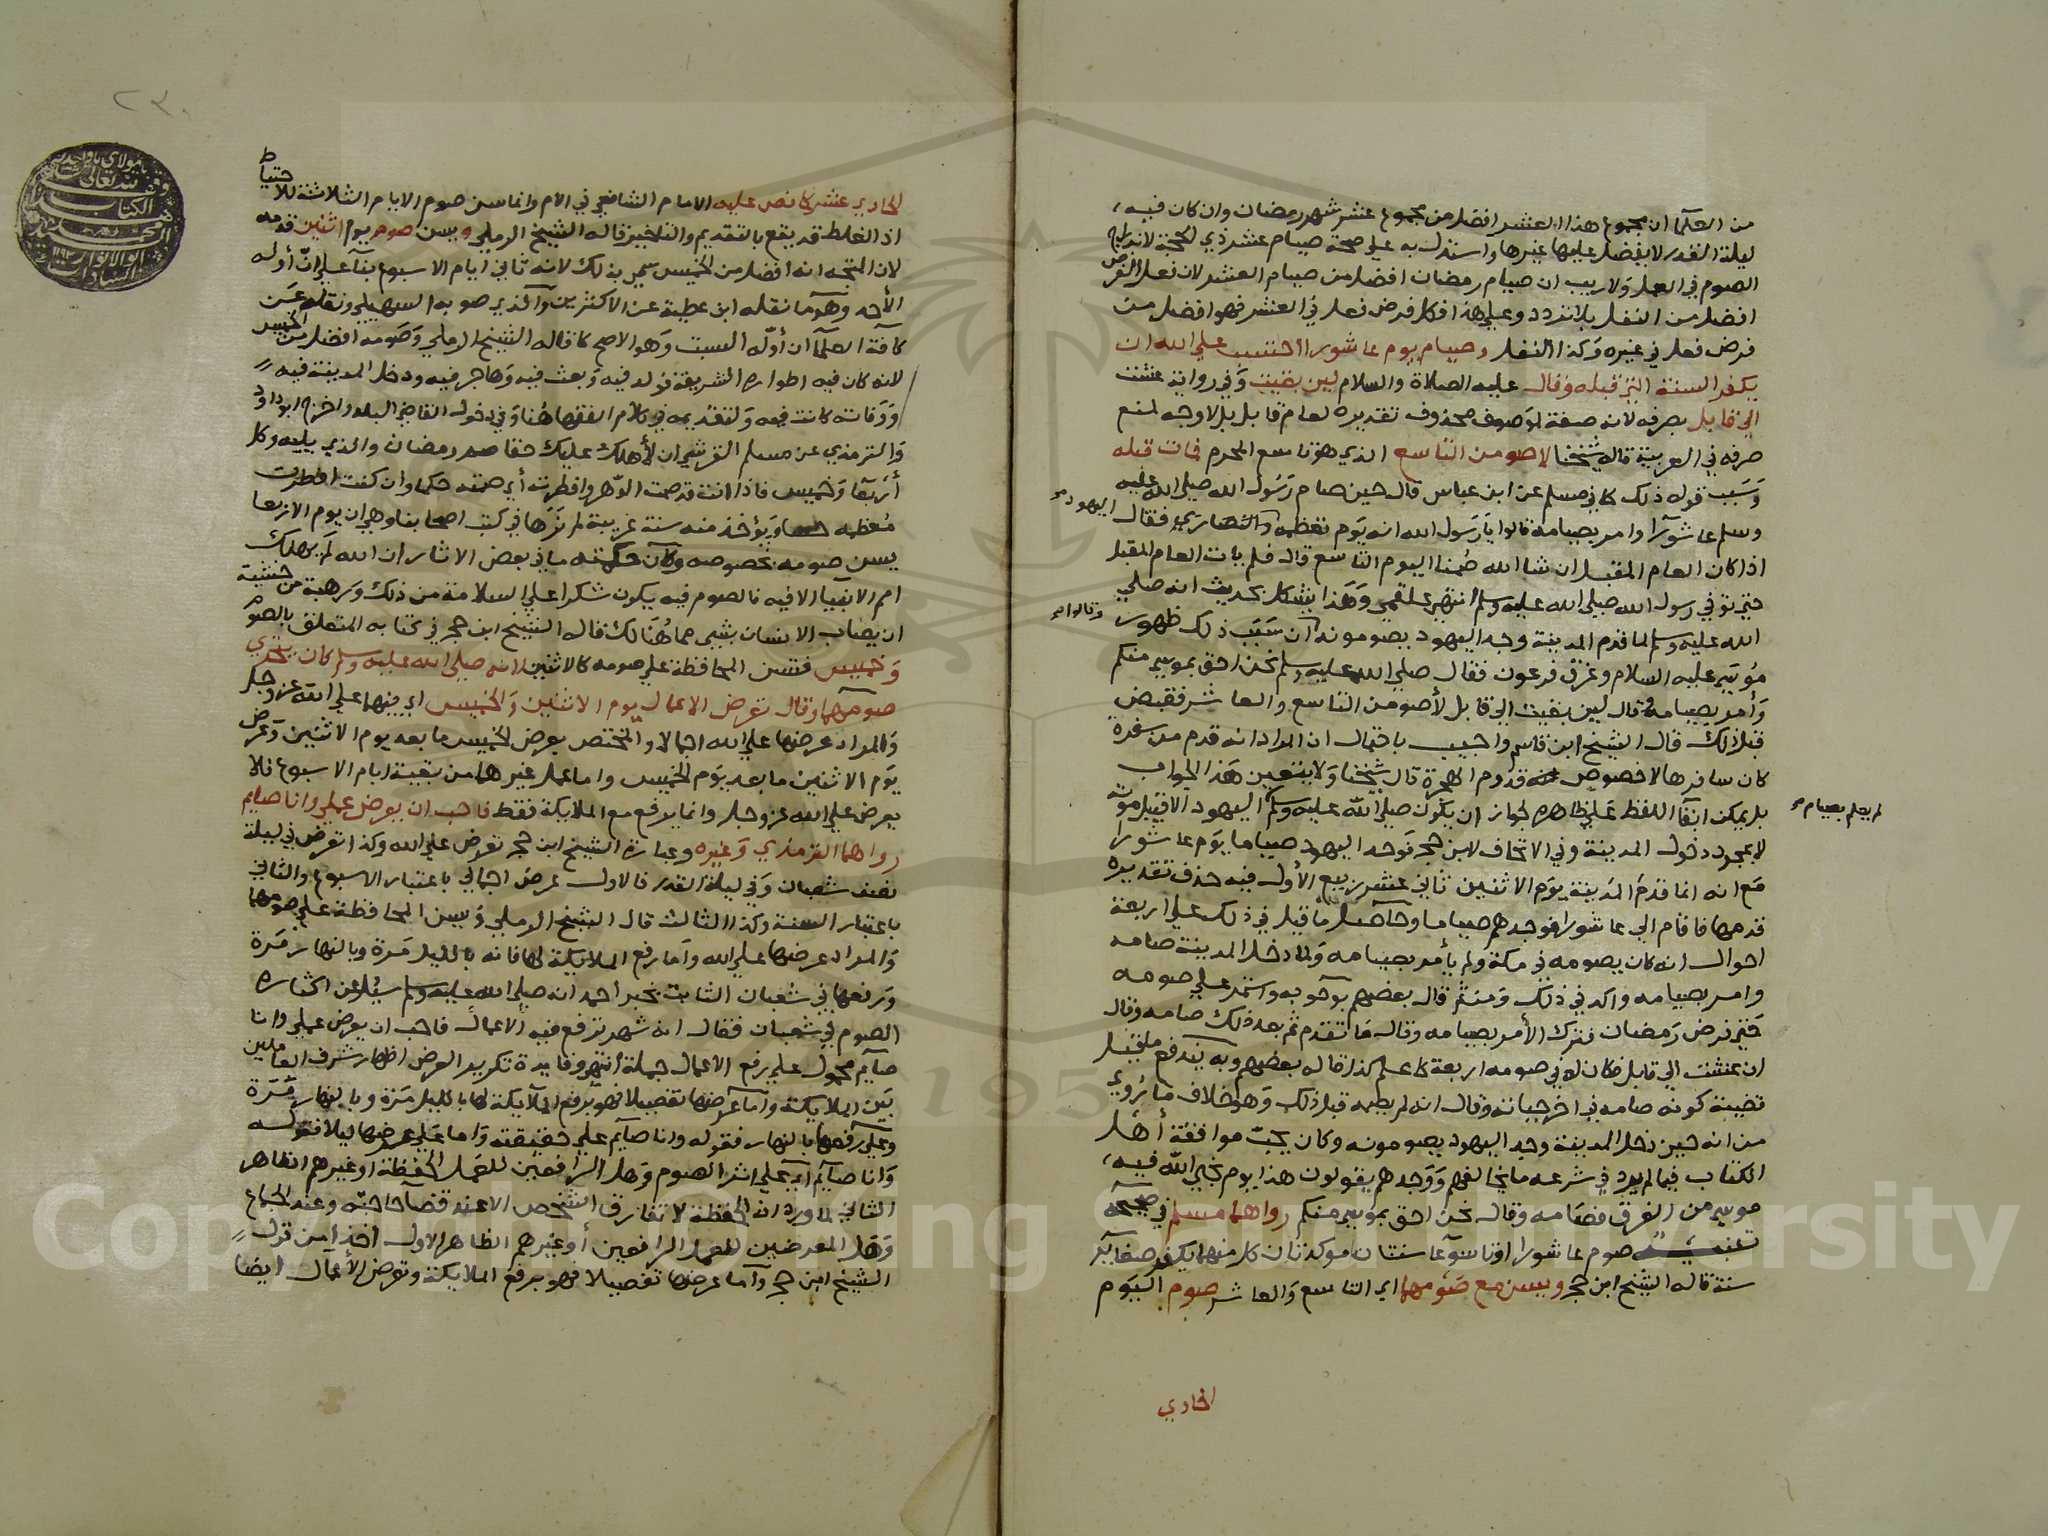 من العلما ان مجموع هذا العشر افضل من مجموع عشر شهر رمضان وان كان فيه
ليلة القدر لا يفضل عليها غيرها واستدل به علي صحة صيام عشر ذي الحجة لاندراج
الصوم في العمل ولا ريب ان صيام رمضان افضل من صيام العشر لان فعل الفرض
افضل من النفل بلا تردد وعلي هذا فكل فرض فعل في العشر فهو افضل من
فرض فعل في غيره وكذا النفل وصيام يوم عاشورا احتسب علي الله ان
يكفر السنة التي قبله وقال عليه الصلاة والسلام لين بقيت وفي رواية عشت
الي قابل بصرفه لانه صفة لموصوف محذوف تقديره لعام قابل بل لا وجه لمنع
صرفه في العربية قاله شيخنا لاصومن التاسع الذي هو تاسع المحرم فمات قبله
وسبب قوله ذلك كما في مسلم عن ابن عباس قال حين صام رسول الله صلي الله عليه
وسلم عاشورا وامر بصيامه قالوا يا رسول الله انه يوم تعظمه والنصاري فقال
اليهود
اذا كان العام المقبل ان شا الله صمنا اليوم التاسع قال فلم يات العام المقبل
حتي توفي رسول الله صلي الله عليه وسلم انتهي علقمي وهذا يشكل بحديث انه صلي
الله عليه وسلم لما قدم المدينة وجد اليهود يصومونه ان سبب ذلك ظهور
وقالوا
موسي عليه السلام وغرق فرعون فقال صلي الله عليه وسلم نحن احق بموسي منكم
وأمر بصيامه وقال لين بقيت الي قابل لأصومن التاسع والعاشر فقبض
قبل ذلك قال الشيخ ابن قاسم واجيب باحتمال ان المراد انه قدم من سفرة
كان سافرها لا خصوص قدوم الهجرة قال شيخنا ولا يتعين هذا الجواب
بل يمكن ابقا اللفظ علي ظاهره لجواز ان يكون صلي الله عليه وسلم اليهود الا قبيل موته
لم يعلم بصيام
لا بمجرد دخول المدينة وفي الاتحاف لابن حجر فوجد اليهود صياما يوم عاشورا
مع انه انما قدم المدينة يوم الاثنين ثاني عشر ربيع الأول فيه حذف تقديره
قدمها فاقام الي عاشورا فوجدهم صياما وحاصل ما قيل في ذلك علي اربعة
احوال انه كان يصومه في مكة ولم يأمر بصيامه ولما دخل المدينة صامه
وامر بصيامه واكد في ذلك ومن ثم قال بعضهم بوجوبه واستمر علي صومه
حتي فرض رمضان فترك الأمر بصيامه وقال ما تقدم ثم بعد ذلك صامه وقال
ان عشت الي قابل فكان له في صومه اربعة كما علم كذا قاله بعضهم وبه يندفع ما قيل
قضية كونه صامه في اخر حياته وقال انه لم يصمه قبل ذلك وهو خلاف ما روي
من انه حين دخل المدينة وجد اليهود يصومونه وكان يحب موافقة أهل
الكتاب فيما لم يرد في شرعه ما يخالفهم ووجدهم يقولون هذا يوم نجي الله فيه
موسي من الغرق فصامه وقال نحن احق بموسي منكم رواهما مسلم في صحيحه
صوم عاشورا وتاسوعا سنتان موكدتان كل منهما يكفر صغاير
سنة قاله الشيخ ابن حجر ويسن مع صومهما اي التاسع والعاشر صوم اليوم
الحادي
الحادي عشر كما نص عليه الامام الشافعي في الأم وانما سن صوم الايام الثلاثة للاحتياط
اذ الغلط قد يقع بالتقديم والتاخير قاله الشيخ الرملي ويسن صوم يوم اثنين قدمه
لان المتجه انه افضل من الخميس سمي بذلك لانه ثاني ايام الاسبوع بنا علي ان أوله
الأحد وهو ما نقله ابن عطية عن الاكثرين والذي صوبه السهيلي ونقله عن
كافة العلما ان أوله السبت وهو الاصح كما قاله الشيخ الرملي وصومه افضل من الخميس
لانه كان فيه اطواره الشريفة فولد فيه وبعث فيه وهاجر فيه ودخل المدينة فيه
ووفاته كانت فيه ولتقديمه في كلام الفقها هنا وفي دخول القاضي البلد واخرج ابوداود
والترمذي عن مسلم القرشي ان لأهلك عليك حقا صم رمضان والذي يليه وكل
أربعا وخميس فاذا انت قد صمت الدهر وافطرت أي صمته حكما وان كنت افطرت
معظمه ويؤخذ منه سنة غريبة لم نرها في كتب اصحابنا وهي ان يوم الاربعا
يسن صومه بخصوصه وكان حكمته ما في بعض الاثار ان الله لم يهلك
امم الانبيا الا فيه فالصوم فيه يكون شكرا علي السلامة من ذلك ورهبة من خشية
ان يصاب الانسان بشي مما هنالك قاله الشيخ ابن حجر في كتابه المتعلق بالصوم
وخميس فتسن المحافظة علي صومه كالاثنين لانه صلي الله عليه وسلم كان يتحري
صومهما وقال تعرض الاعمال يوم الاثنين والخميس اي فيهما علي الله عز وجل
والمراد عرضها علي الله اجمالا والمختص بعرض الخميس ما بعد يوم الاثنين وتعرض
يوم الاثنين ما بعد يوم الخميس واما عمل غيرهما من بقية ايام الاسبوع فلا
يعرض علي الله عز وجل وانما يرفع مع الملايكة فقط فاحب ان يعرض عملي وانا صايم
رواهما الترمذي وغيره وعبارة الشيخ ابن حجر تعرض علي الله وكذا تعرض في ليلة
نصف شعبان وفي ليلة القدر فالاول عرض اجمالي باعتبار الاسبوع والثاني
باعتبار السنة وكذا الثالث قال الشيخ الرملي ويسن المحافظة علي صومهما
والمراد عرضها علي الله وأما رفع الملايكة لها فانه بالليل مرة وبالنهار مرة
ورفعها في شعبان الثابت بخبر احمد انه صلي الله عليه وسلم سيل عن اكثاره
الصوم في شعبان فقال انه شهر ترفع فيه الاعمال فاحب ان يعرض عملي وانا
صايم محمول علي رفع الاعمال جملة انتهي وفايدة تكرير العرض اظهار شرف العاملين
بين الملايكة وأما عرضها تفصيلا فهو برفع الملايكة لها بالليل مرة وبالنهار مرة
وعلي رفعها بالنهار فقوله وانا صايم علي حقيقته واما علي عرضها ليلا فقوله
وانا صايم اي علي اثر الصوم وهل الرافعين للعمل الحفظة او غيرهم الظاهر
الثاني لما ورد ان الحفظة لا تفارق الشخص الا عند قضا حاجته وعند الجماع
وهل المعرضين للعمل الرافعين أو غيرهم الظاهر الاول اخذا من قول
الشيخ ابن حجر وأما عرضها تفصيلا فهو برفع الملايكة وتعرض الأعمال ايضا
Copyright © King Saud University
195